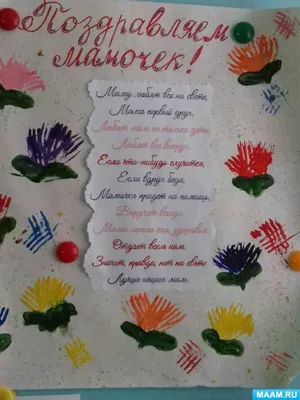 Поздравляем
мамочек!
Маму любят все на свете,
Мама первый друг.
Любят мам не только дети,
Любят все вокруг.
Если что-нибудь случится,
Если вдруг беда,
Мамочка придёт на помощь,
Выручит всегда.
Мамы много сил, здоровья
Отдают всем нам.
Значит, правда, нет на свете
Лучше наших мам.
MAAM.RU